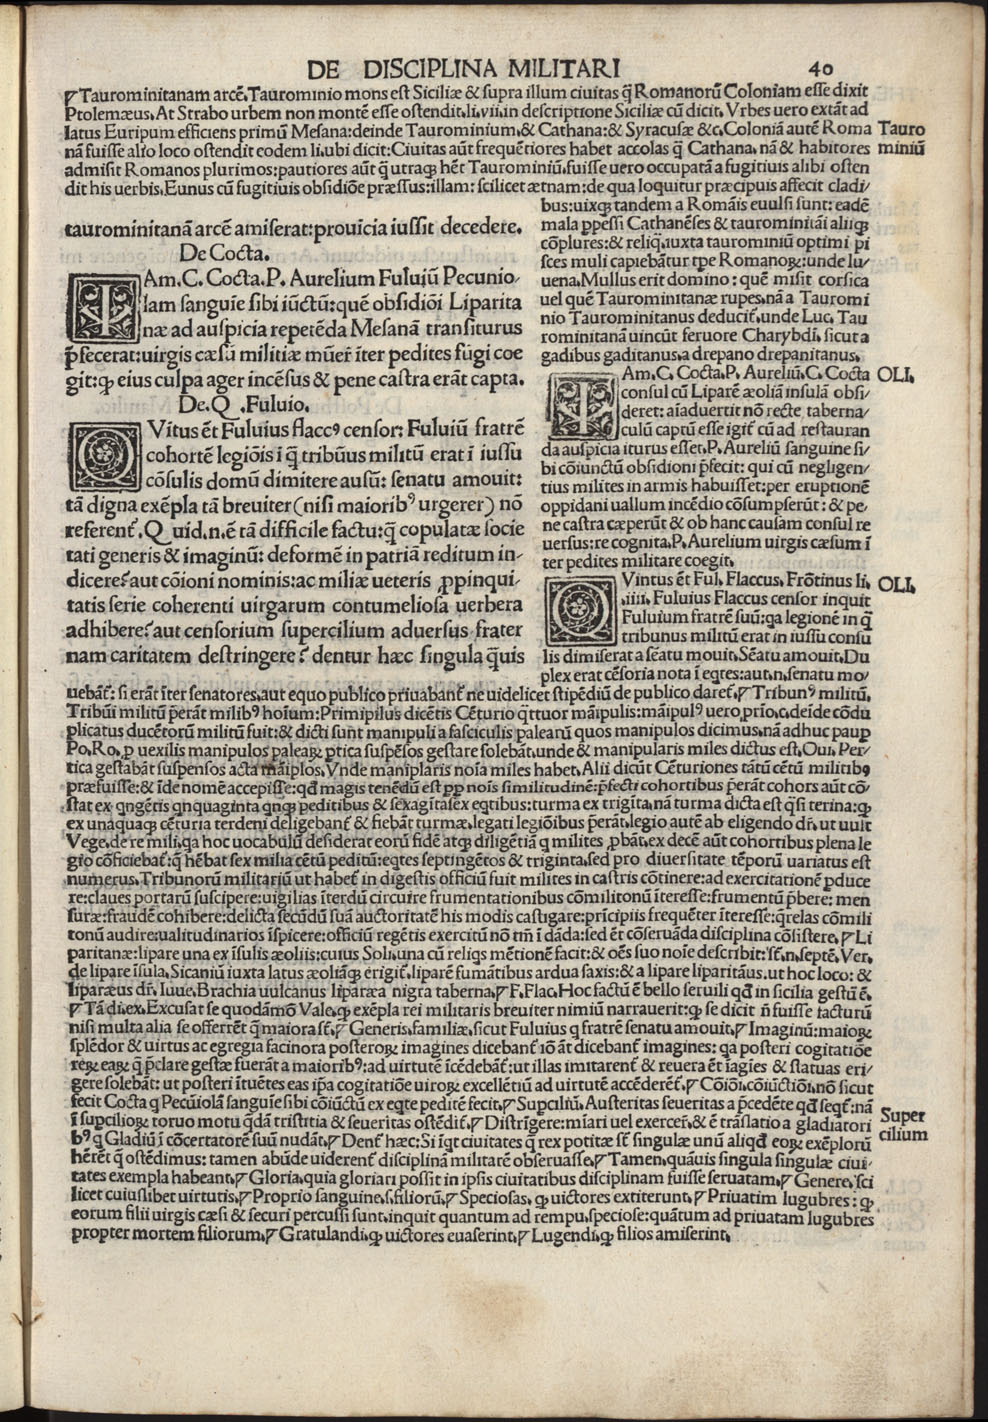 DE DISCIPLINA MILITARI 40
⁋Taurominitanam arcē.Taurominio mons est Siciliæ & supra illum ciuitas q̄ Romanorū Coloniam esse dixit
Ptolemæus.At Strabo urbem non montē esse ostendit.li.vii.in descriptione Siciliæ cū dicit.Vrbes uero extāt ad
latus Euripum efficiens primū Mesana:deinde Taurominium.& Cathana:& Syracusæ &c.Coloniā autē Roma
nā fuisse alio loco ostendit eodem li.ubi dicit:Ciuitas aūt frequētiores habet accolas q̄ Cathana.nā & habitores
admisit Romanos plurimos:pautiores aūt q̄ utraqꝫ hēt Taurominiū.fuisse uero occupatā a fugitiuis alibi osten
dit his uerbis.Eunus cū fugitiuis obsidiōe præssus:illam: scilicet ætnam:de qua loquitur præcipuis affecit cladi/
Tauro
miniū
taurominitanā arcē amiserat:prouīcia iussit decedere.
De Cocta.
TAm.C.Cocta.P. Aurelium Fuluiū Pecunio/
lam sanguīe sibi iūctū:quē obsidiōi Liparita
næ ad auspicia repetēda Mesanā transiturus
p̄fecerat:uirgis cæsū militiæ mūer̄ īter pedites fūgi coe
git:qꝫ eius culpa ager incēsus & pene castra erāt capta.
De.Q .Fuluio.
QVītus ēt Fuluius flaccꝰ censor: Fuluiū fratrē
cohortē legiōis ī q̄ tribūus militū erat ī iussu
cōsulis domū dimitere ausū: senatu amouit:
tā digna exēpla tā breuiter(nisi maioribꝰ urgerer) nō
referent᷑.Q uid.n.ē tā difficile factu:q̄ copulatæ socie
tati generis & imaginū: deformē in patriā reditum in/
dicere?aut cōioni nominis:ac miliæ ueteris ꝓpinqui/
tatis serie coherenti uirgarum contumeliosa uerbera
adhibere?aut censorium supercilium aduersus frater
nam caritatem destringere? dentur hæc singula q̄uis
bus:uixqꝫ tandem a Romāis euulsi sunt: eadē
mala ꝑpessi Cathanēses & taurominitāi aliiqꝫ
cōplures:& reliq̄.iuxta taurominiū optimi pi
sces muli capiebātur tꝑe Romanoꝝ:unde Iu/
uena.Mullus erit domino: quē misit corsica
uel quē Taurominitanæ rupes.nā a Tauromi
nio Taurominitanus deducit᷑.unde Luc. Tau
rominitanā uincūt feruore Charybdī. sicut a
gadibus gaditanus.a drepano drepanitanus.
TAm. C. Cocta.P. Aureliū.C. Cocta OLI.
consul cū Liparē æoliā insulā obsi/
deret: aīaduertit nō recte taberna/
culū captū esse igit᷑ cū ad restauran
da auspicia iturus esset.P. Aureliū sanguine si/
bi cōiunctū obsidioni p̄fecit: qui cū negligen/
tius milites in armis habuisset:per eruptionē
oppidani uallum incēdio cōsumpserūt: & pe/
ne castra cæperūt & ob hanc causam consul re
uersus:re cognita.P. Aurelium uirgis cæsum ī
ter pedites militare coegit.
QVintus ēt Ful. Flaccus. Frōtinus li. OLI.
.iiii. Fuluius Flaccus censor inquit
Fuluium fratrē suū:qa legionē in q̄
tribunus militū erat in iussu consu
lis dimiserat a sēatu mouit.Sēatu amouit.Du
plex erat cēsoria nota ī eqtes:aut.n.senatu mo/
uebāt᷑: si erāt īter senatores.aut equo publico priuabant᷑ ne uidelicet stipēdiū de publico daret᷑.⁋Tribunꝰ militū.
Tribūi militū p̄erāt milibꝰ hoīum:Primipilus dicētis Cēturio q̄ttuor māipulis:māipulꝰ uero prīo.c.deīde cōdu
plicatus ducētorū militū fuit:& dicti sunt manipuli a fasciculis palearū quos manipulos dicimus.nā adhuc pauꝑ
Po.Ro.p uexilis manipulos paleaꝝ ꝑtica suspēsos gestare solebāt.unde & manipularis miles dictus est.Oui. Per/
tica gestabāt suspensos acta māiplos. Vnde maniplaris noīa miles habet. Alii dicūt Cēturiones tātū cētū militibꝰ
præfuisse:& īde nomē accepisse:qđ magis tenēdū est ꝑp noīs similitudinē:p̄fecti cohortibus p̄erāt cohors aūt cō/
stat ex qngētis qnquaginta qnqꝫ peditibus & sexagītasex eqtibus:turma ex trigīta.nā turma dicta est q̄si terina:qꝫ
ex unaquaqꝫ cēturia terdeni deligebant᷑ & fiebāt turmæ.legati legiōibus p̄erāt.legio autē ab eligendo dr̄.ut uult
Vege.de re mili.qa hoc uocabulū desiderat eorū fidē atqꝫ diligētiā q milites ꝓbāt.ex decē aūt cohortibus plena le
gio cōficiebat᷑:q̄ hēbat sex milia cētū peditū:eqtes septingētos & triginta.sed pro diuersitate tēporū uariatus est
numerus.Tribunorū militariū ut habet᷑ in digestis officiū fuit milites in castris cōtinere:ad exercitationē p̄duce
re:claues portarū suscipere:uigilias īterdū circuire frumentationibus cōmilitonū īteresse:frumentū p̄bere: men
suræ:fraudē cohibere:delicta secūdū suā auctoritatē his modis castigare:prīcipiis frequēter īteresse:q̄relas cōmili
tonū audire:ualitudinarios īspicere:officiū regētis exercitū nō tm̄ ī dāda:sed ēt cōseruāda disciplina cōsistere.⁋Li
paritanæ:lipare una ex īsulis æoliis:cuius Soli.una cū reliqs mētionē facit:& oēs suo noīe describit:sūt.n.septē.Ver.
de lipare īsula.Sicaniū iuxta latus æoliāqꝫ erigit᷑.liparē fumātibus ardua saxis:& a lipare liparitāus.ut hoc loco: &
liparæus dr̄. Iuue.Brachia uulcanus liparæa nigra taberna.⁋F.Flac.Hoc factū ē bello seruili qđ in sicilia gestū ē.
⁋Tā di.ex.Excusat se quodāmō Vale.qꝫ exēpla rei militaris breuiter nimiū narrauerit:qꝫ se dicit n̄ fuisse facturū
nisi multa alia se offerrēt q̄ maiora sūt.⁋Generis.familiæ.sicut Fuluius q fratrē senatu amouit.⁋Imaginū:maioꝝ
splēdor & uirtus ac egregia facinora posteroꝝ imagines dicebant᷑ iō āt dicebant᷑ imagines: qa posteri cogitatiōe
reꝝ eaꝝ q̄ p̄clare gestæ fuerāt a maioribꝰ:ad uirtutē īcēdebāt᷑:ut illas imitarent᷑ & reuera ēt īagies & statuas eri/
gere solebāt: ut posteri ītuētes eas ip̄a cogitatiōe uiroꝝ excellētiū ad uirtutē accēderēt᷑.⁋Cōiōi.cōiūctiōi.nō sicut
fecit Cocta q Pecūiolā sanguīe sibi cōiūctū ex eqte peditē fecit.⁋Suꝑciliū.Austeritas seueritas a p̄cedēte qđ seqt᷑:nā
ī suꝑcilioꝝ toruo motu q̄dā tristitia & seueritas ostēdit᷑.⁋Distrīgere:mīari uel exercer̄.& ē trāslatio a gladiatori
bꝰ q Gladiū ī cōcertatorē suū nudāt.⁋Dent᷑ hæc:Si īqt ciuitates q̄ rex potitæ sūt singulæ unū aliqđ eoꝝ exēplorū
Super
cilium
hērēt q̄ ostēdimus: tamen abūde uiderent᷑ disciplinā militarē obseruasse.⁋Tamen.quāuis singula singulæ ciui/
tates exempla habeant.⁋Gloria.quia gloriari possit in ipsis ciuitatibus disciplinam fuisse seruatam.⁋Genere.sci
licet cuiuslibet uirtutis.⁋Proprio sanguine.s.filiorū.⁋Speciosas. qꝫ uictores extiterunt.⁋Priuatim lugubres: qꝫ
eorum filii uirgis cæsi & securi percussi sunt.inquit quantum ad rempu.speciose:quātum ad priuatam lugubres
propter mortem filiorum.⁋Gratulandi.qꝫ uictores euaserint.⁋Lugendi.qꝫ filios amiserint.